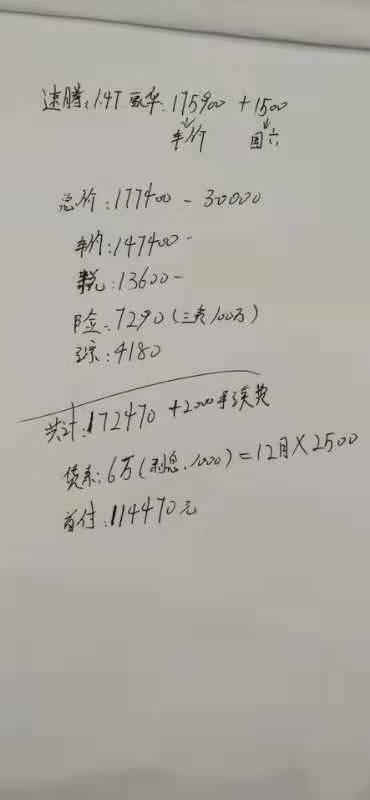 速腾:1.4T 豪华:175900 + 1500
车价 国六
总价:177400 - 30000
车价:147400 -
税:13600 -
险:7290(三责100万)
:4180
共计:172470 + 2000手续费
贷款:6万(利息.1000)=12月×2500
首付:114470元